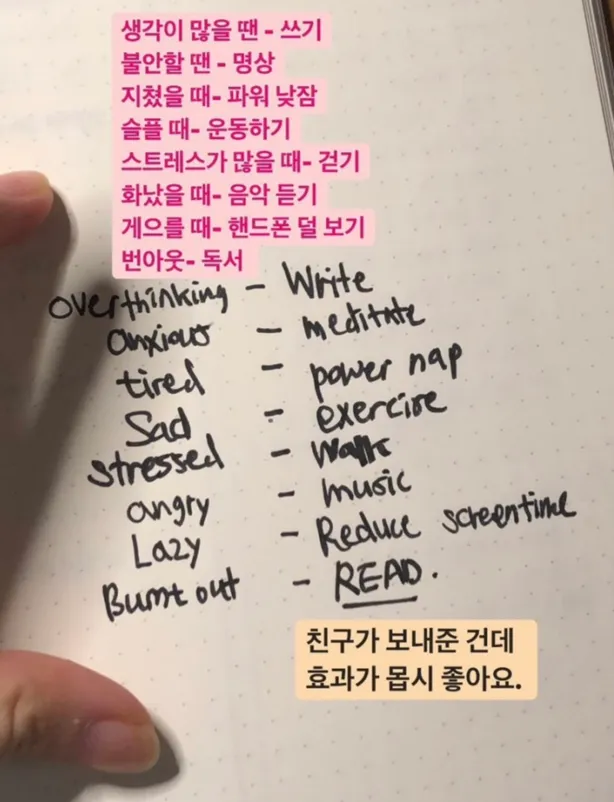 생각이 많을 땐 - 쓰기
불안할 땐 - 명상
지쳤을 때- 파워 낮잠
슬플 때- 운동하기
스트레스가 많을 때- 걷기
화났을 때- 음악 듣기
게으를 때- 핸드폰 덜 보기
번아웃- 독서
overthinking - Write
anxious - meditate
tired - power nap
Sad - exercise
stressed - Walk
angry - music
Lazy - Reduce screentime
Burnt out - READ.
친구가 보내준 건데
효과가 몹시 좋아요.